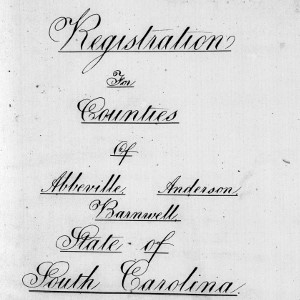 Registration
For
Counties
Of
Abbeville. Anderson.
Barnwell.
State of
South Carolina.